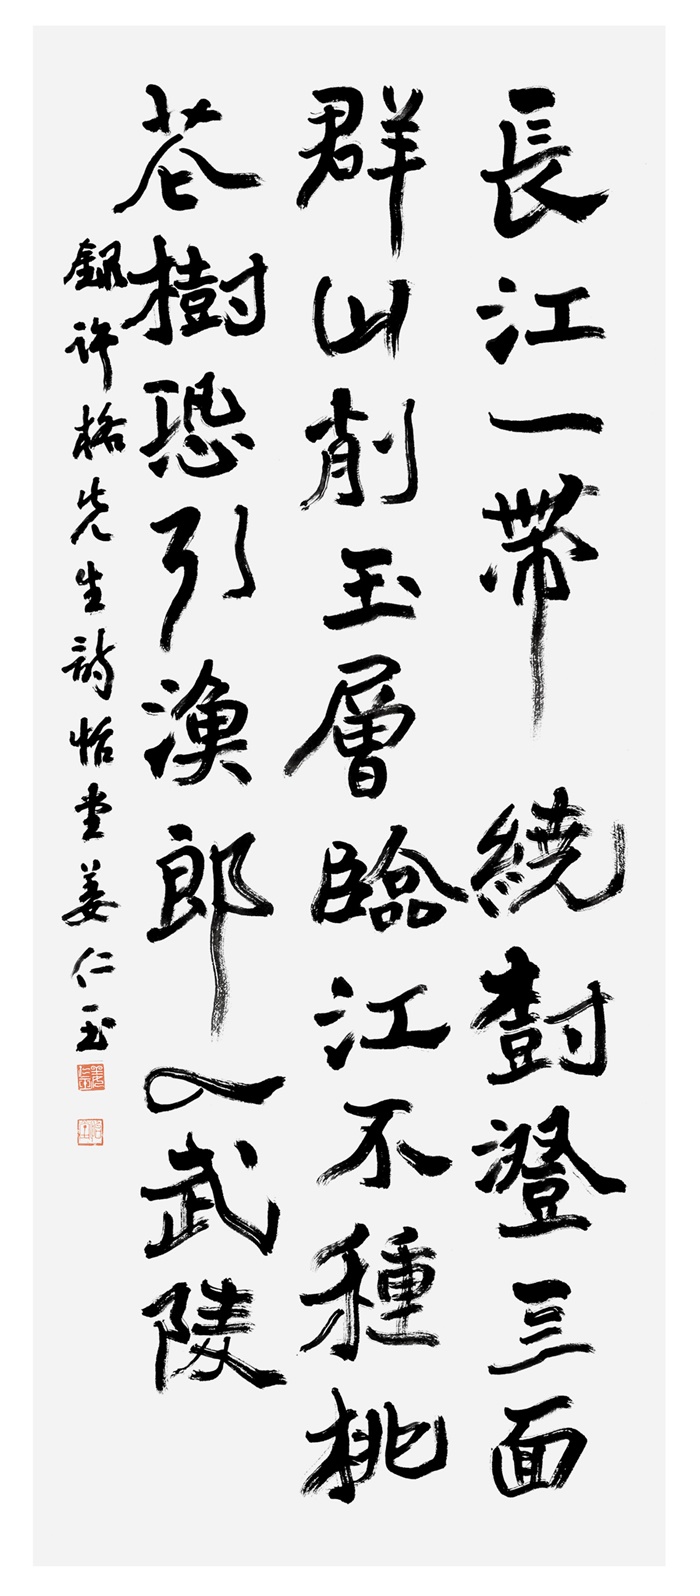 長江一帶繞尌澄三面
群山削玉層臨江不種桃
花樹恐引漁郎入武陵
錄許格先生詩怡堂姜仁玉